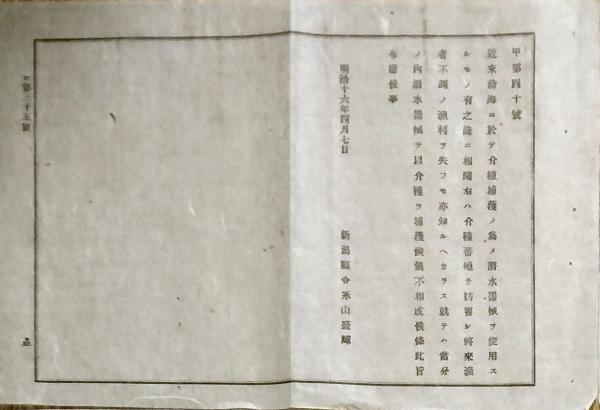 甲第四十號
近來沿海ニ於テ介種捕獲ノ爲メ潛水器械ヲ使用ス
ルモノ有之哉ニ相聞右ハ介種蕃殖ヲ妨害シ將來漁
者不測ノ漁利ヲ失フモ亦知ルヘカラス就テハ當分
ノ內潛水器械ヲ以介種ヲ捕獲候儀不相成候條此旨
布達候事
明治十六年四月七日
新潟縣令永山盛輝
甲第三十五號